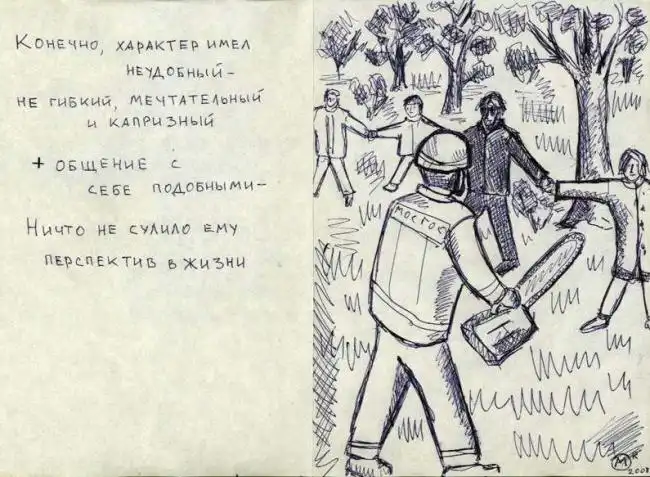 Конечно, характер имел
неудобный –
не гибкий, мечтательный
и капризный
+ общение с
себе подобными –
Ничто не сулило ему
перспектив в жизни
МОСГОС
МК
2008